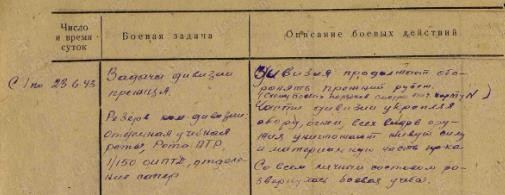 Число
и время
суток
Боевая задача
Описание боевых действий
С 1 по 23.6.43
Задача дивизии
прежняя.
Резерв ком. дивизии:
Отдельная учебная
рота, Рота ПТР,
1/150 ОИПТД, отделе-
ние сапер
Дивизия продолжает обо-
ронять прежний рубеж.
Части дивизии укрепляя
обору, огнем всех видов ору-
жия уничтожают живую силу
и материальную часть пр-ка.
Со всем личным составом ра-
звернулась боевая учеба.